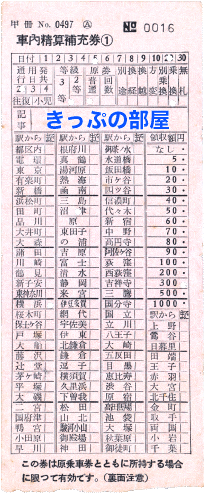 甲 冊 No. 0497 Ⓐ
No 0016
車内精算補充券①
日付 1 2 3 4 5 6 7 8 9 10 20 30
記事
きっぷの部屋
駅から 駅から 駅から 領収額円
都区内 根府川 御茶ノ水 なし
電環 真鶴 水道橋 5
東京 湯河原 飯田橋 10
有楽町 熱海 市ケ谷 20
新橋 函南 四ツ谷 30
浜松町 三島 信濃町 40
田町 沼津 代々木 50
品川 原 新宿 60
大井町 東田子 中野 70
大森 の浦 高円寺 80
蒲田 吉原 阿佐ケ谷 90
川崎 富士 荻窪 100
鶴見 清水 西荻窪 200
新子安 静岡 吉祥寺 300
東神奈川 米原 三鷹 500
横浜 伊豆多賀 国分寺 1000
桜木町 網代 国立 駅から
保土ケ谷 宇佐美 立川 上野
戸塚 伊東 八王子 鶯谷
大船 北鎌倉 大崎 日暮里
藤沢 鎌倉 五反田 田端
辻堂 逗子 目黒 王子
茅ケ崎 横須賀 恵比寿 赤羽
平塚 久里浜 渋谷 大宮
大磯 下曽我 原宿 北千住
二宮 松田 高田馬場 金町
国府津 山北 池袋 取手
鴨宮 駿河小山 大塚 両国
小田原 御殿場 秋葉原 小岩
早川 神田 御徒町 千葉
この券は原乗車券とともに所持する場合
に限つて有効です。（裏面注意）